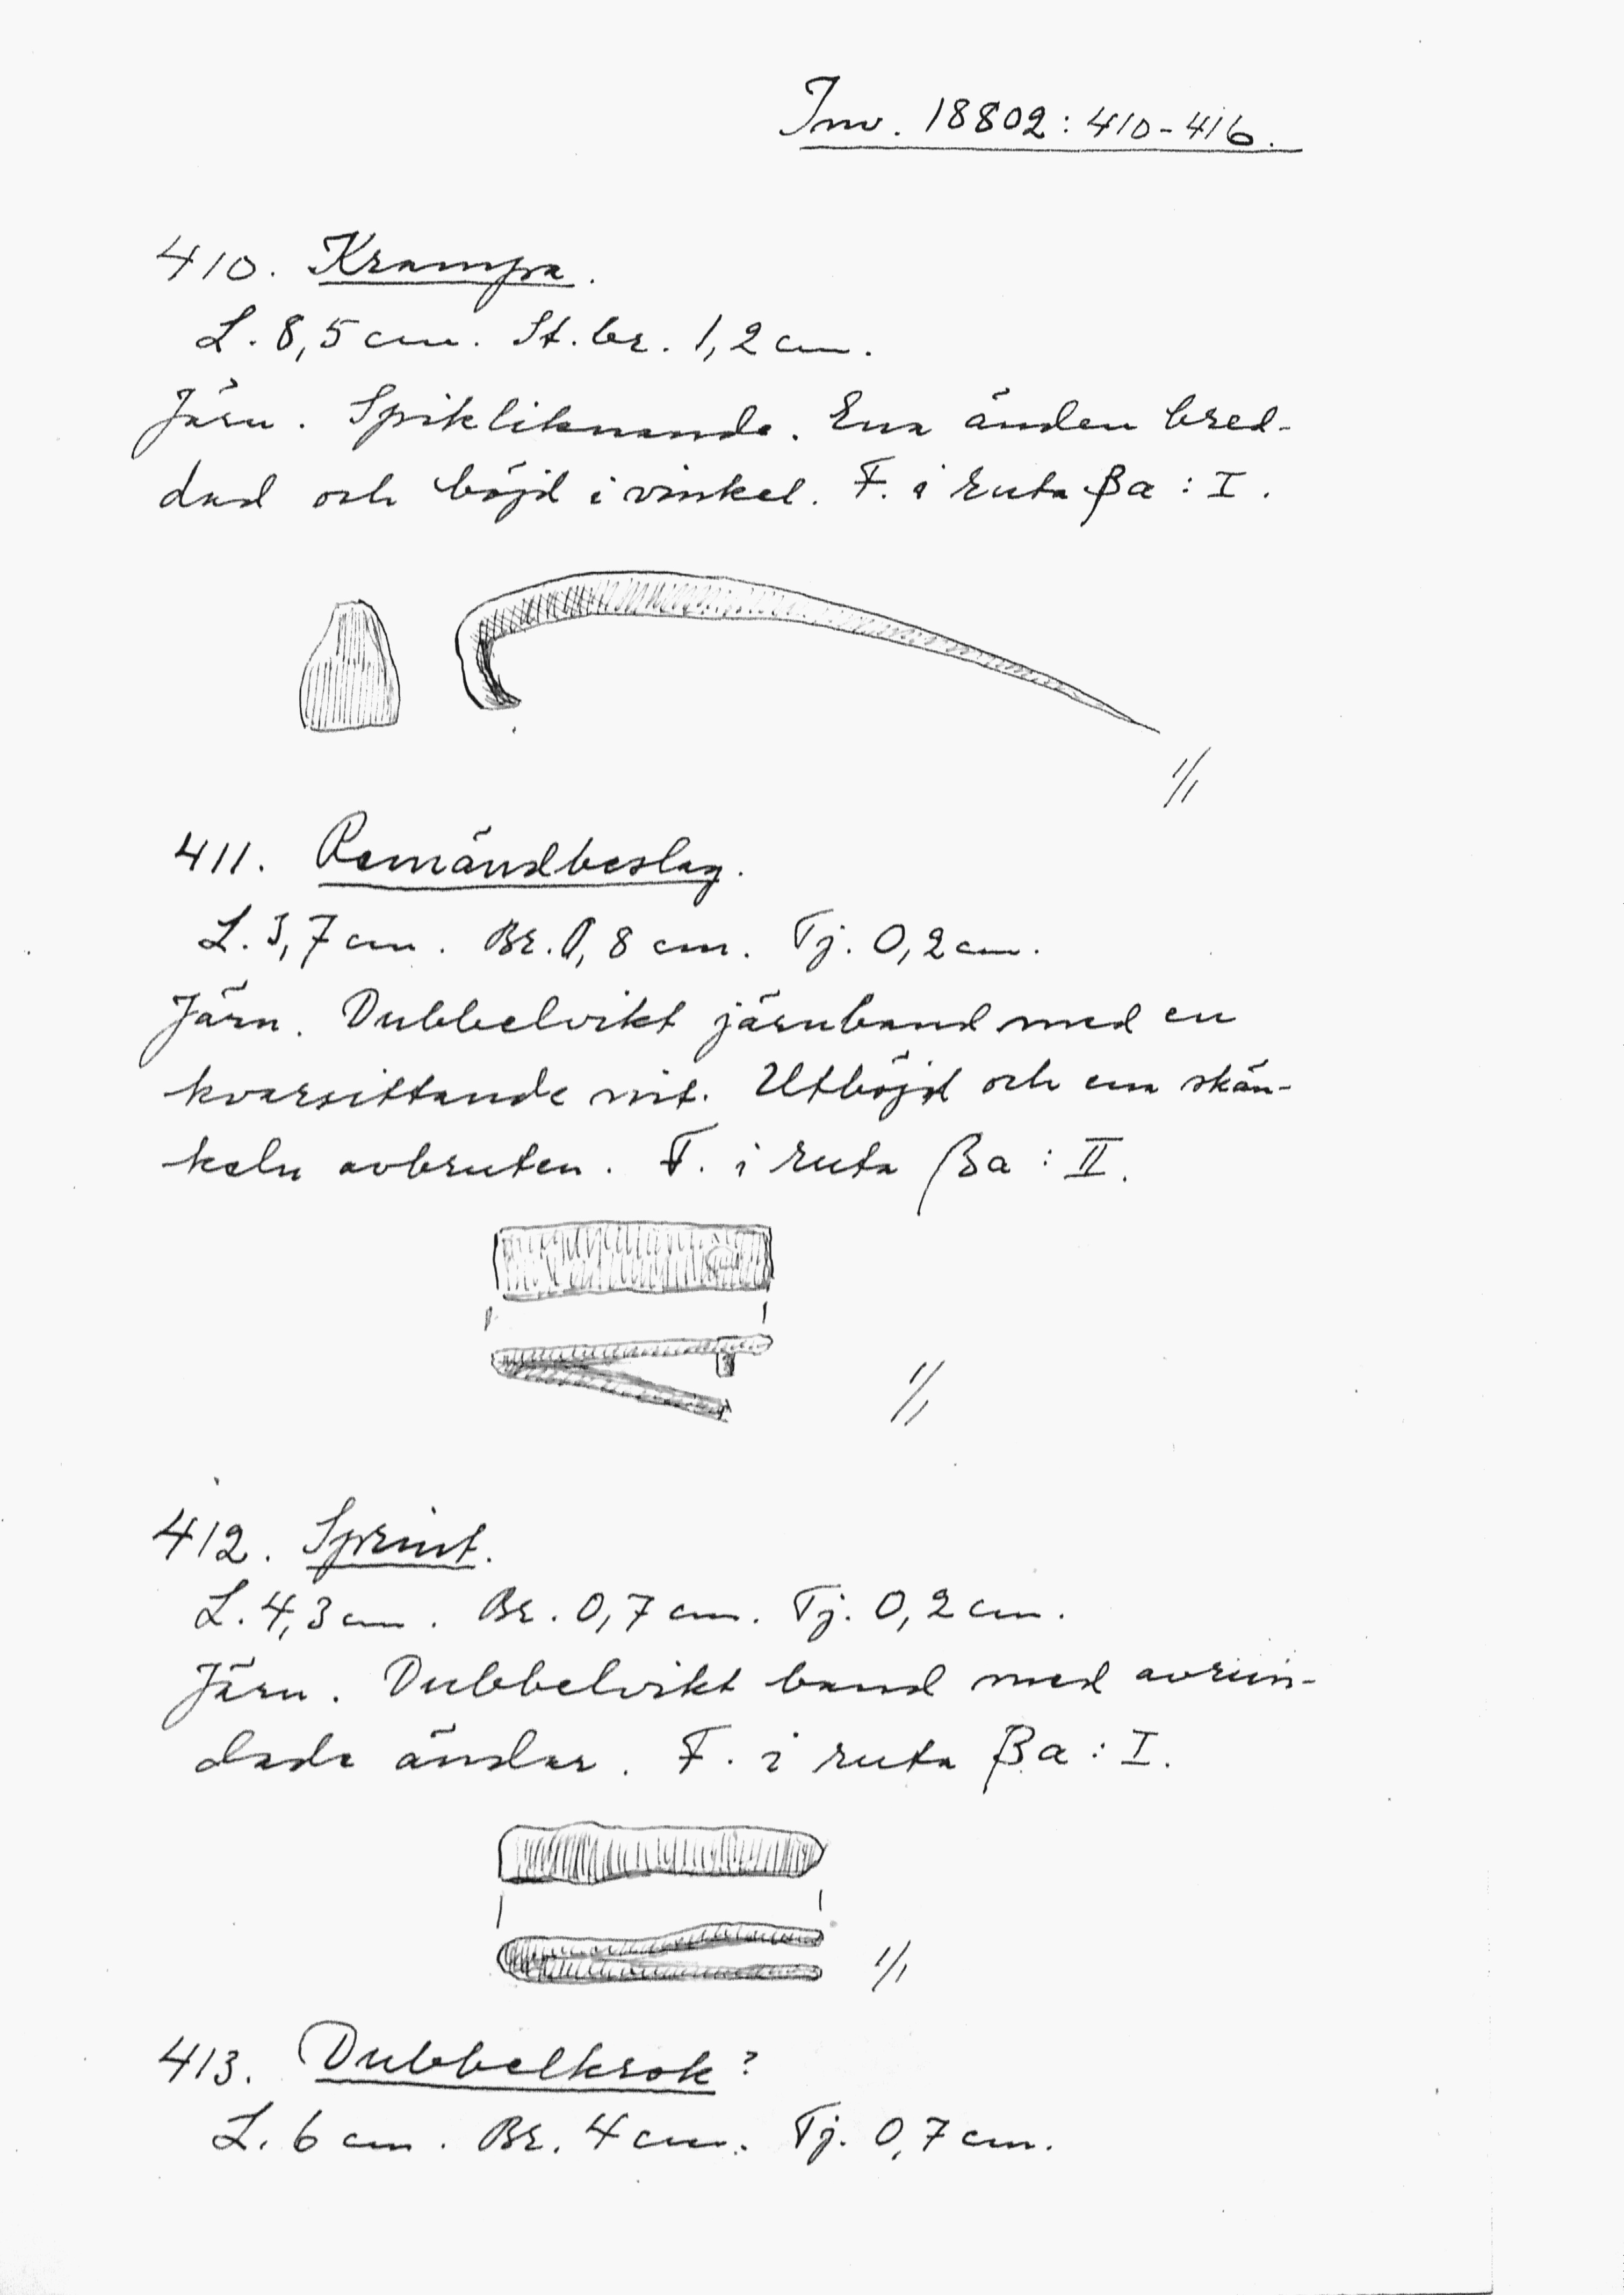 Inv. 18802:410-416.
410. Krampa.
L. 8,5 cm. St. br. 1,2 cm.
Järn. Spikliknande. Ena änden bred-
dad och böjd i vinkel. F. i ruta βa : I.
1/1
411. Remändbeslag.
L. 3,7 cm. Br. 0,8 cm. Tj. 0,2 cm.
Järn. Dubbelvikt järnband med en
kvarsittande nit. Utböjd och ena skän-
keln avbruten. F. i ruta βa : II.
1/1
412. Sprint.
L. 4,3 cm. Br. 0,7 cm. Tj. 0,2 cm.
Järn. Dubbelvikt band med avrun-
dade ändar. F. i ruta βa : I.
1/1
413. Dubbelkrok?
L. 6 cm. Br. 4 cm. Tj. 0,7 cm.